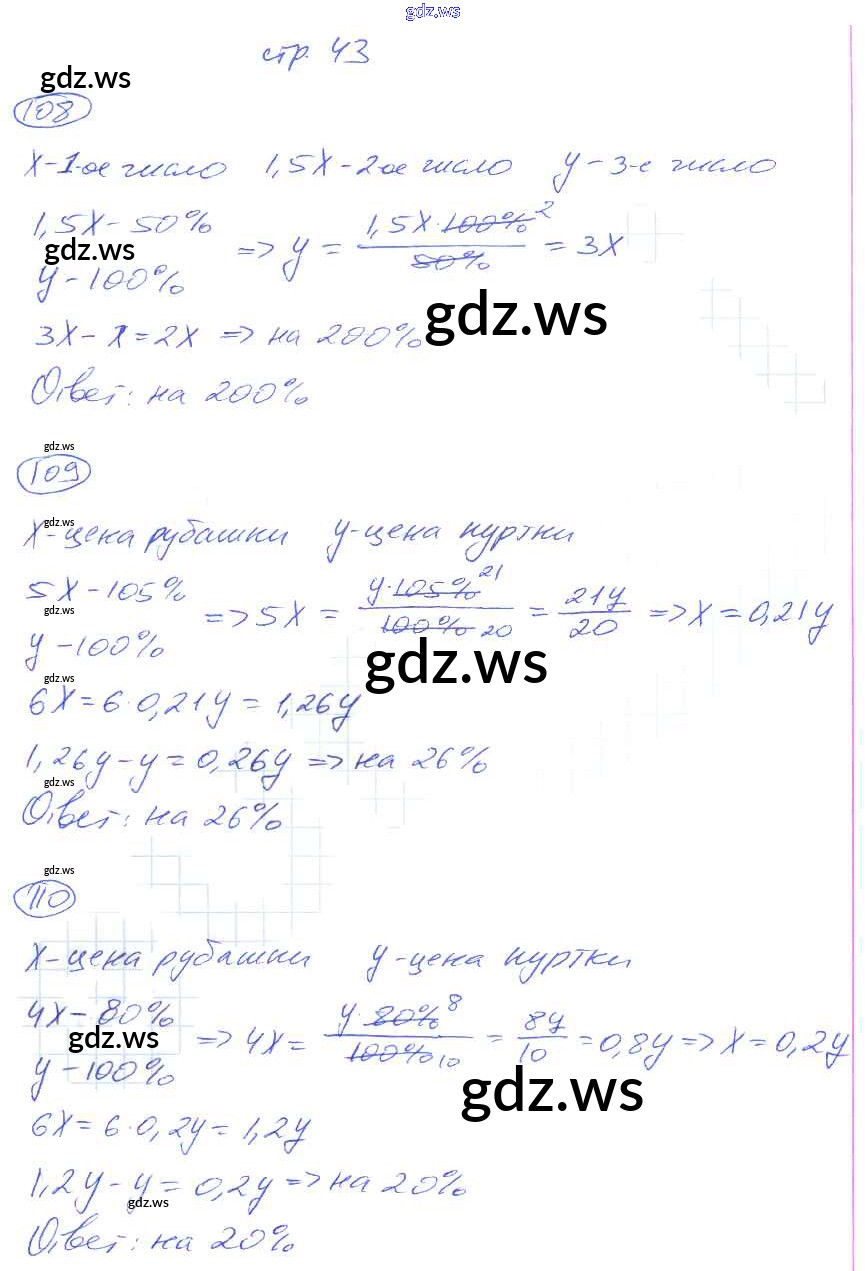 gdz.ws
стр. 43
gdz.ws
108
X-1-ое число 1,5X-2-ое число y-3-е число
1,5X-50%
gdz.ws
y-100%
=> y = 1,5X·100% 2 / 50% = 3X
gdz.ws
3X-1=2X => на 200%
Ответ: на 200%
gdz.ws
109
gdz.ws
X-цена рубашки y-цена куртки
5X-105%
gdz.ws
y-100%
=> 5X = y·105% 21 / 100% 20 = 21y / 20 => X = 0,21y
gdz.ws
gdz.ws
6X=6·0,21y=1,26y
1,26y-y=0,26y => на 26%
gdz.ws
Ответ: на 26%
gdz.ws
110
X-цена рубашки y-цена куртки
4X-80%
gdz.ws
y-100%
=> 4X= y·80% 8 / 100% 10 = 8y / 10 =0,8y => X=0,2y
gdz.ws
6X=6·0,2y=1,2y
1,2y-y=0,2y => на 20%
gdz.ws
Ответ: на 20%